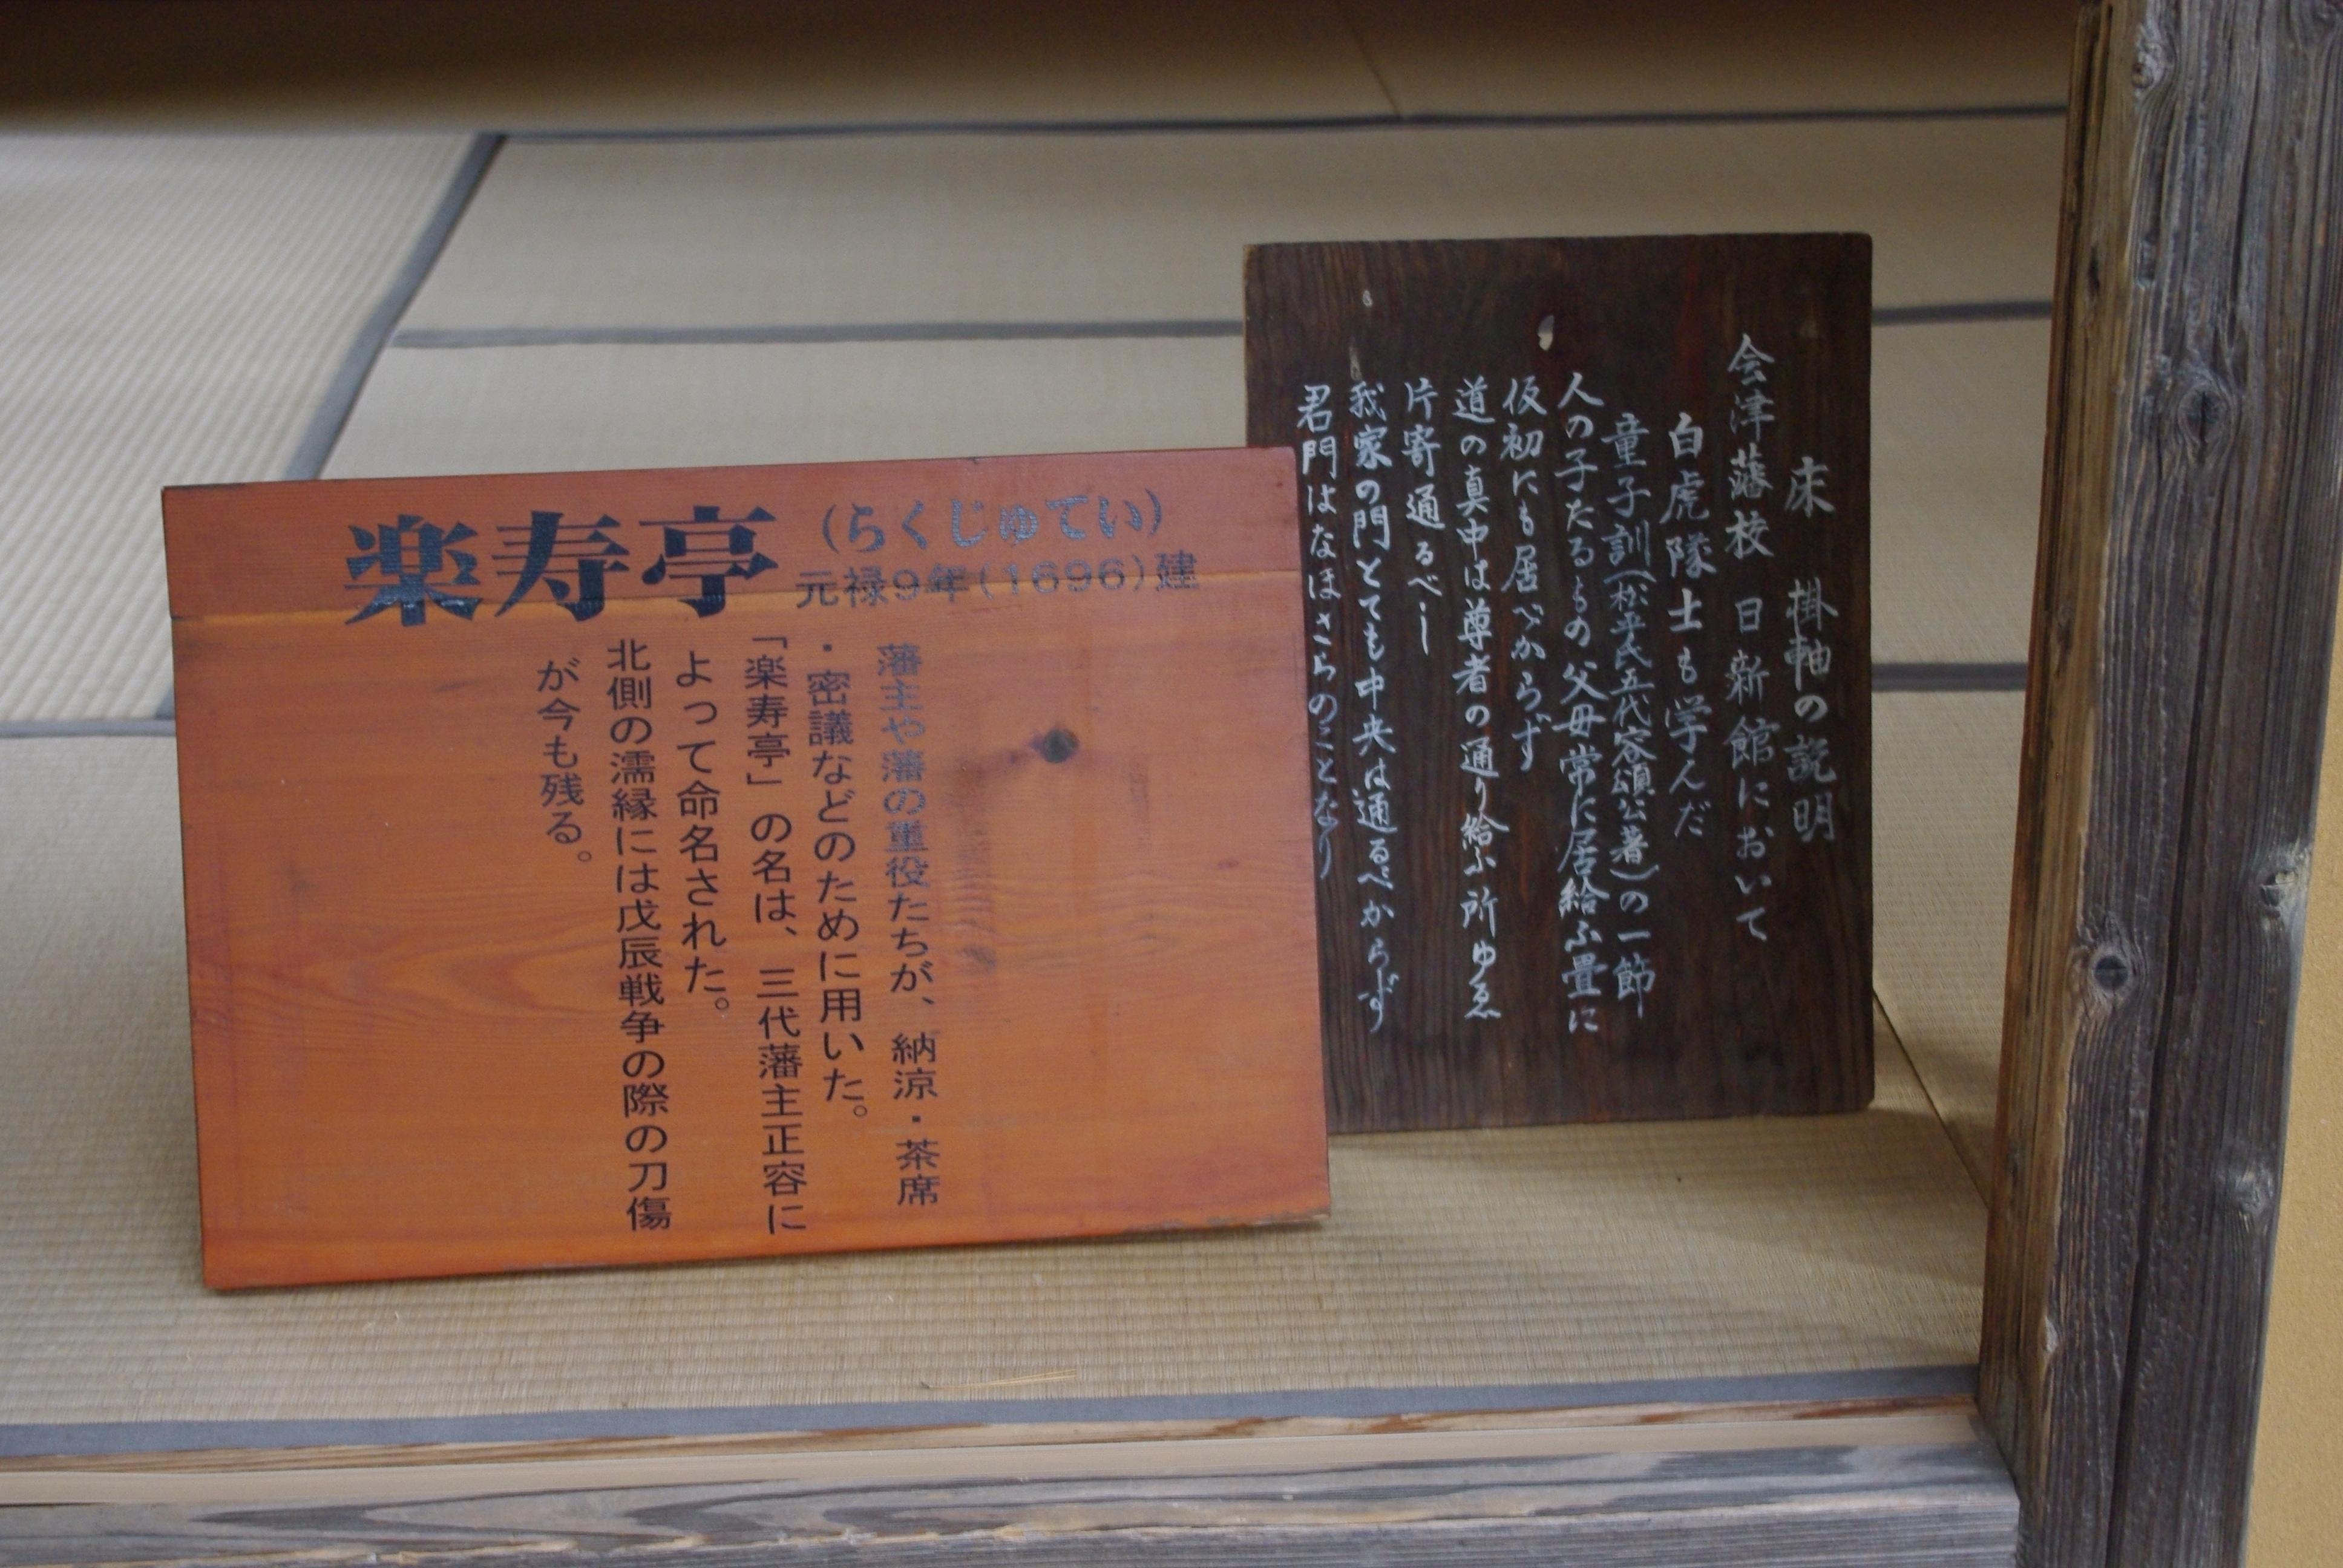 楽寿亭
(らくじゅてい)
元禄9年(1696)建
藩主や藩の重役たちが、納涼・茶席
・密議などのために用いた。
「楽寿亭」の名は、三代藩主正容に
よって命名された。
北側の濡縁には戊辰戦争の際の刀傷
が今も残る。
床 掛軸の説明
会津藩校 日新館において
白虎隊士も学んだ
童子訓(松平氏五代容頌公著)の一節
人の子たるもの父母常に居給ふ畳に
仮初にも居べからず
道の真中は尊者の通り給ふ所ゆゑ
片寄通るべし
我家の門とても中央は通るべからず
君門はなほさらのことなり